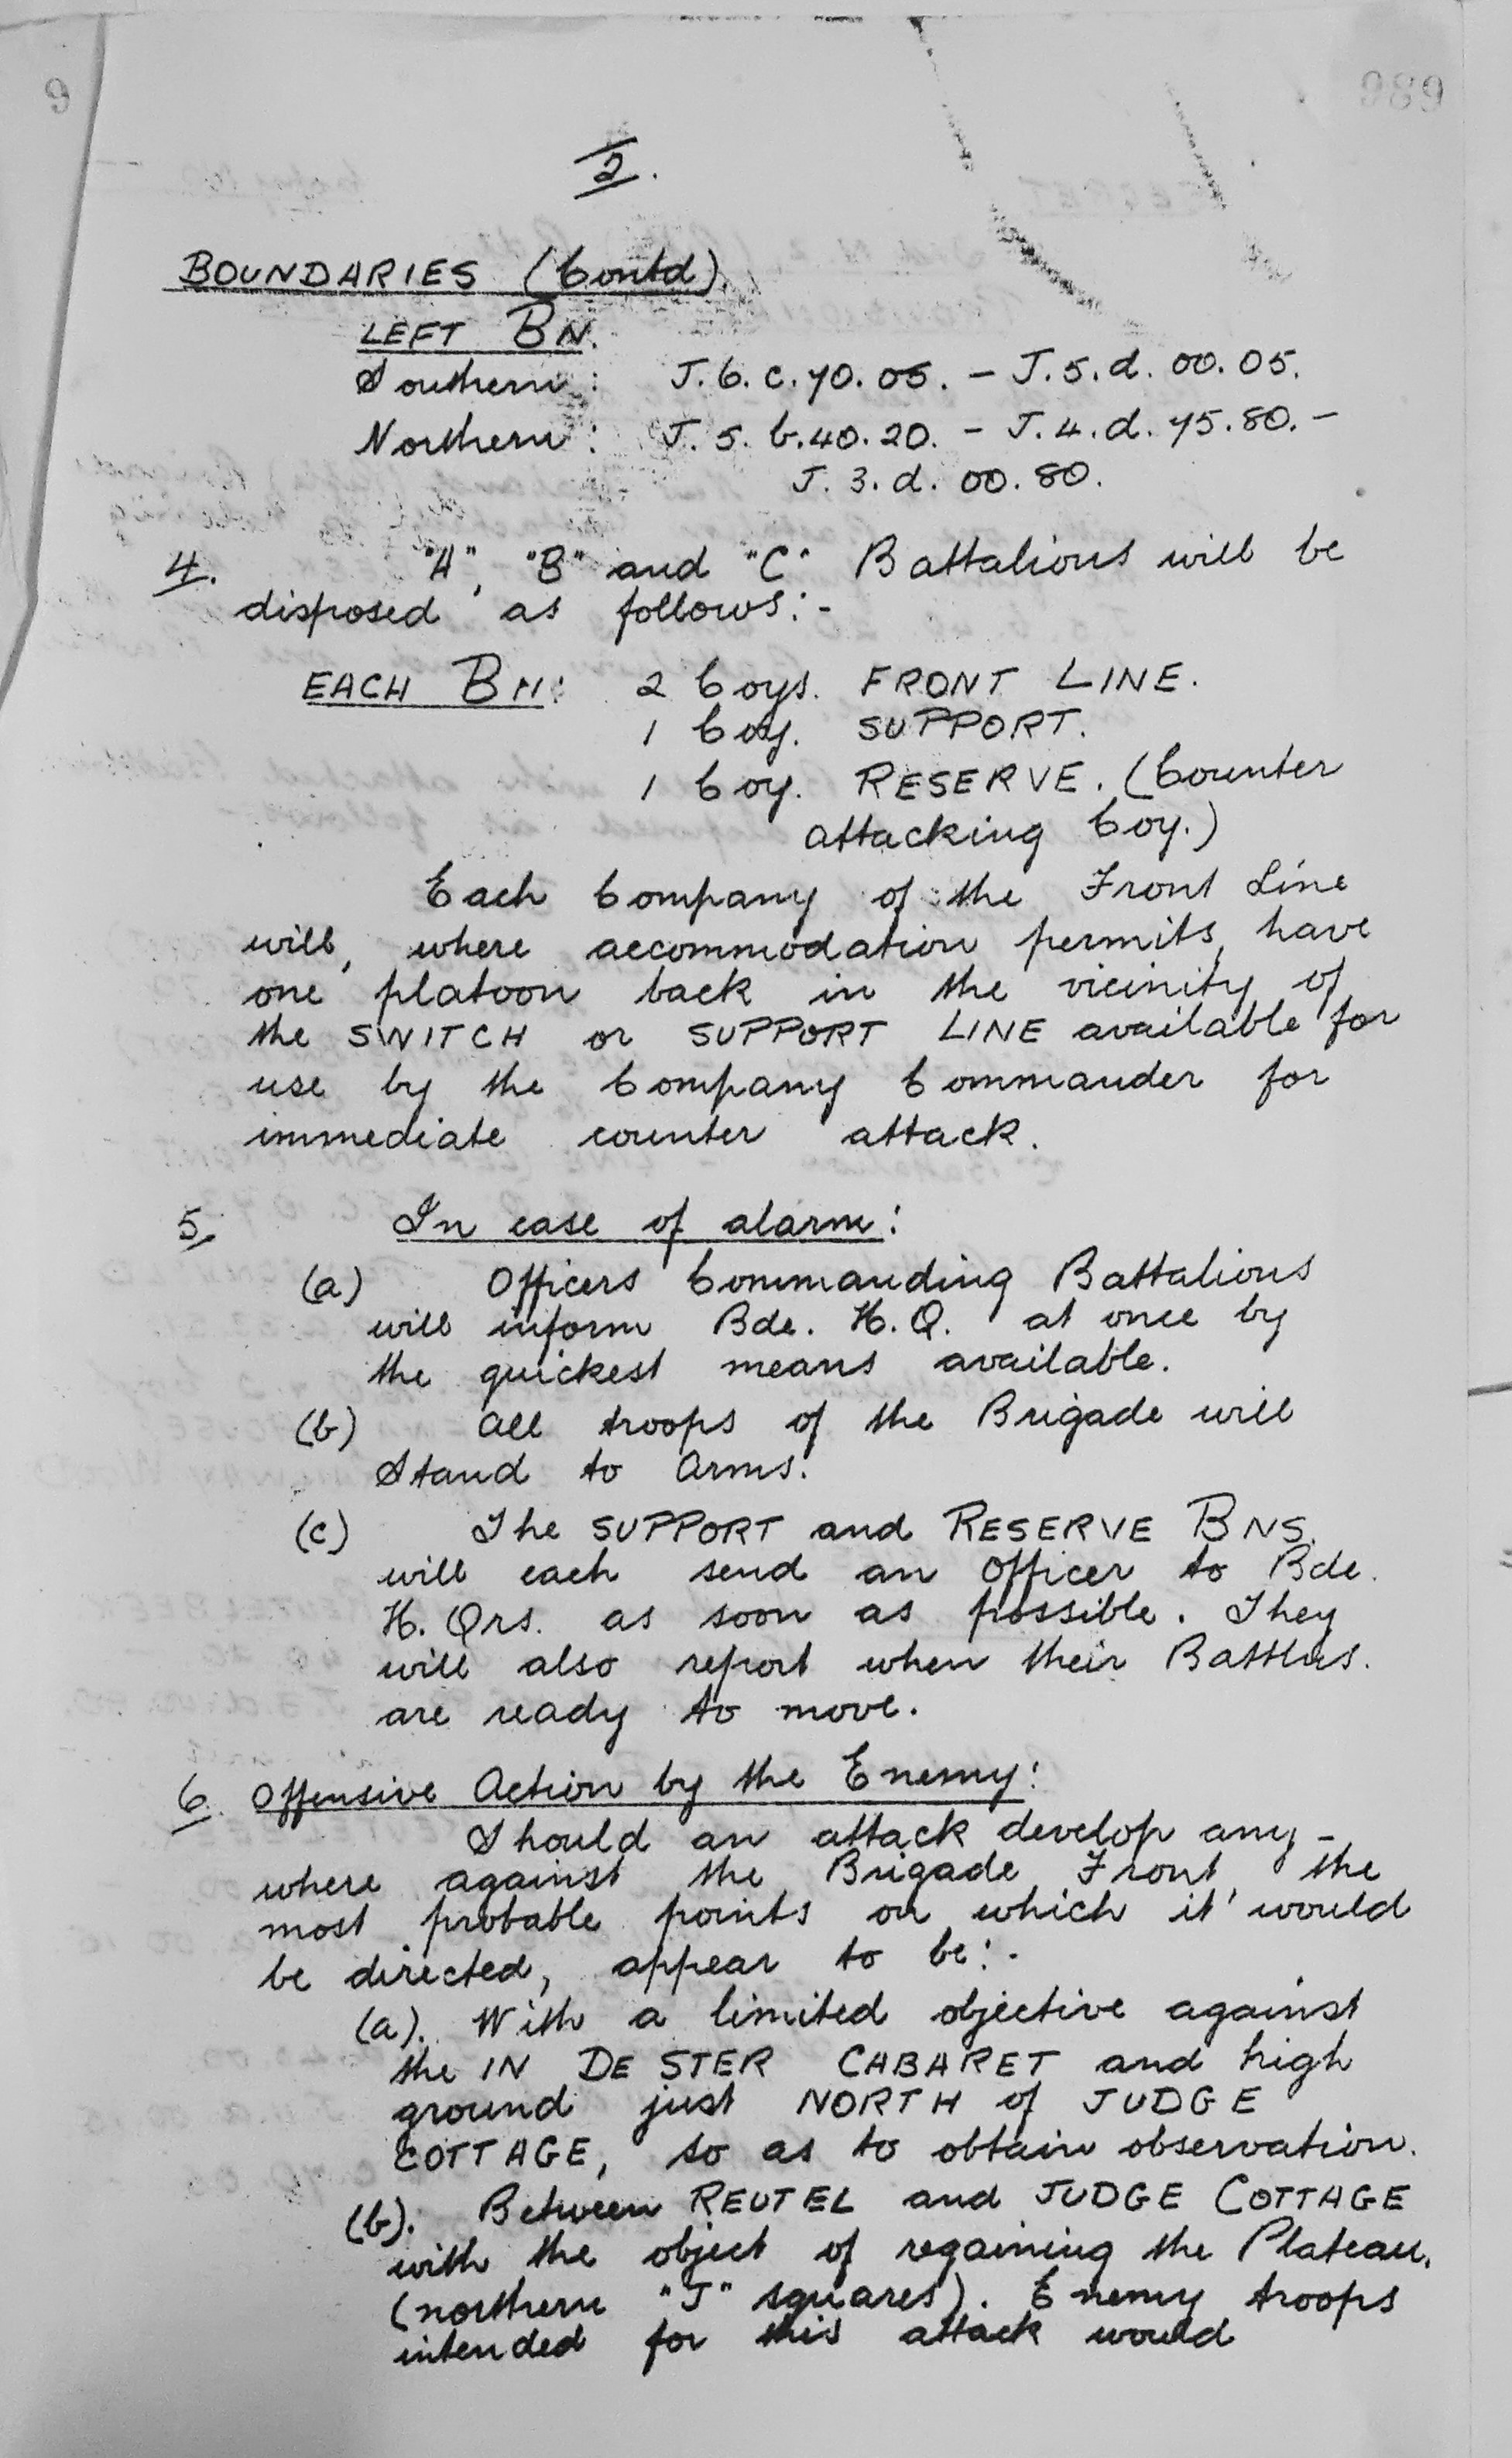 2.
BOUNDARIES (Contd)
LEFT BN.
Southern: J.6.c.70.05. - J.5.d.00.05.
Northern: J.5.b.40.20. - J.4.d.75.80. -
J.3.d.00.80.
4. "A", "B" and "C" Battalions will be
disposed as follows:-
EACH BN: 2 Coys. FRONT LINE.
1 Coy. SUPPORT.
1 Coy. RESERVE. (Counter
attacking Coy.)
Each Company of the Front Line
will, where accommodation permits, have
one platoon back in the vicinity of
the SWITCH or SUPPORT LINE available for
use by the Company Commander for
immediate counter attack.
5. In case of alarm:
(a) Officers Commanding Battalions
will inform Bde. H.Q. at once by
the quickest means available.
(b) All troops of the Brigade will
Stand to Arms.
(c) The SUPPORT and RESERVE BNS.
will each send an Officer to Bde.
H.Qrs. as soon as possible. They
will also report when their Battlns.
are ready to move.
6. Offensive Action by the Enemy:
Should an attack develop any-
where against the Brigade Front, the
most probable points on which it would
be directed, appear to be:-
(a). With a limited objective against
the IN DE STER CABARET and high
ground just NORTH of JUDGE
COTTAGE, so as to obtain observation.
(b). Between REUTEL and JUDGE COTTAGE
with the object of regaining the Plateau.
(northern "J" squares). Enemy troops
intended for this attack would